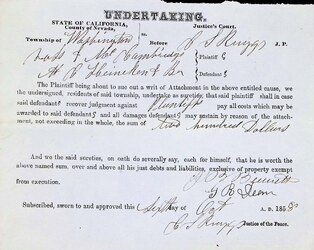 UNDERTAKING.
STATE OF CALIFORNIA, ss.
County of Nevada,
Justice's Court.
Township of Washington Before C S Rugg J. P.
& Mc Cambridge Plaintiff s
A B & Bro Defendant s
The Plaintiff being about to sue out a writ of Attachment in the above entitled cause, we
the undersigned, residents of said township, undertake as sureties that said plaintiff shall in case
said defendant s recover judgment against Plaintiff pay all costs which may be
awarded to said defendant s and all damages defendant s may sustain by reason of the attach-
ment, not exceeding in the whole, the sum of two hundred Dollars
And we the said sureties, on oath do severally say, each for himself, that he is worth the
above named sum, over and above all his just debts and liabilities, exclusive of property exempt
from execution.
J B Bennett
G R
Subscribed, sworn to and approved this sixth day of Oct A. D. 185
C S Rugg Justice of the Peace.